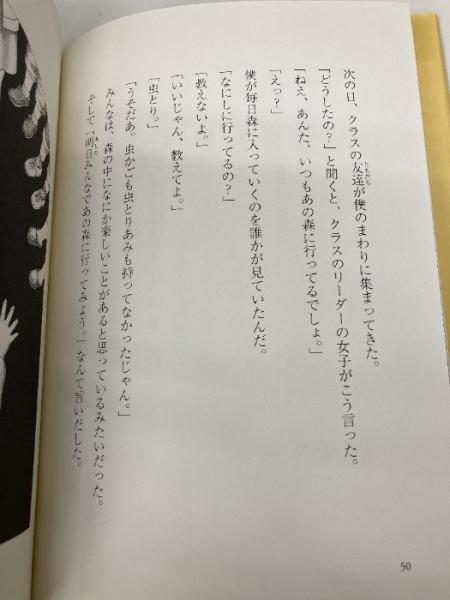 次の日、クラスの友達が僕のまわりに集まってきた。
「どうしたの?」と聞くと、クラスのリーダーの女子がこう言った。
「ねえ、あんた、いつもあの森に行ってるでしょ。」
「えっ?」
僕が毎日森に入っていくのを誰かが見ていたんだ。
「なにしに行ってるの?」
「教えないよ。」
「いいじゃん、教えてよ。」
「虫とり。」
「うそだあ。虫かごも虫とりあみも持ってなかったじゃん。」
みんなは、森の中になにか楽しいことがあると思っているみたいだった。
そして「明日みんなであの森に行ってみよう。」なんて言いだした。
50